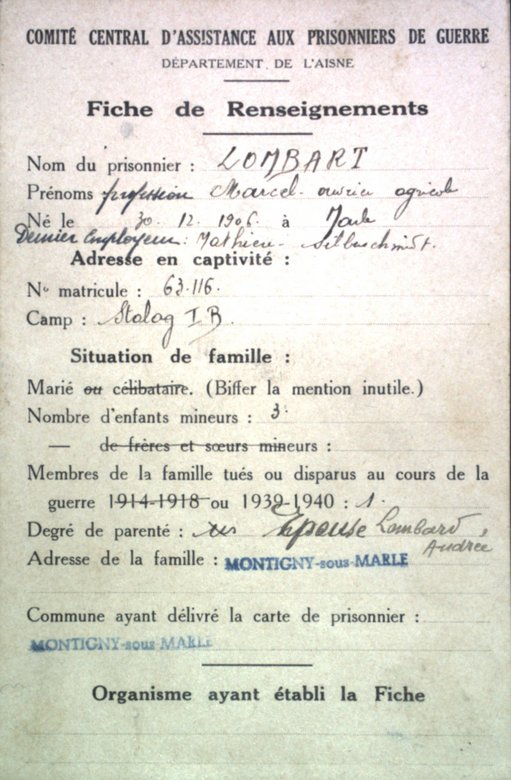 COMITÉ CENTRAL D'ASSISTANCE AUX PRISONNIERS DE GUERRE
DÉPARTEMENT DE L'AISNE
Fiche de Renseignements
Nom du prisonnier : LOMBART
Prénoms profession Marcel ouvrier agricole
Né le 30. 12. 1906 à Marle
Dernier Employeur : Mathieu
Adresse en captivité :
No matricule : 63.116.
Camp : Stalag I B.
Situation de famille :
Marié ou célibataire. (Biffer la mention inutile.)
Nombre d'enfants mineurs : 3.
— de frères et sœurs mineurs :
Membres de la famille tués ou disparus au cours de la
guerre 1914-1918 ou 1939-1940 : 1.
Degré de parenté : Epouse Lombard,
Andrée
Adresse de la famille : MONTIGNY-sous-MARLE
Commune ayant délivré la carte de prisonnier :
MONTIGNY-sous-MARLE
Organisme ayant établi la Fiche